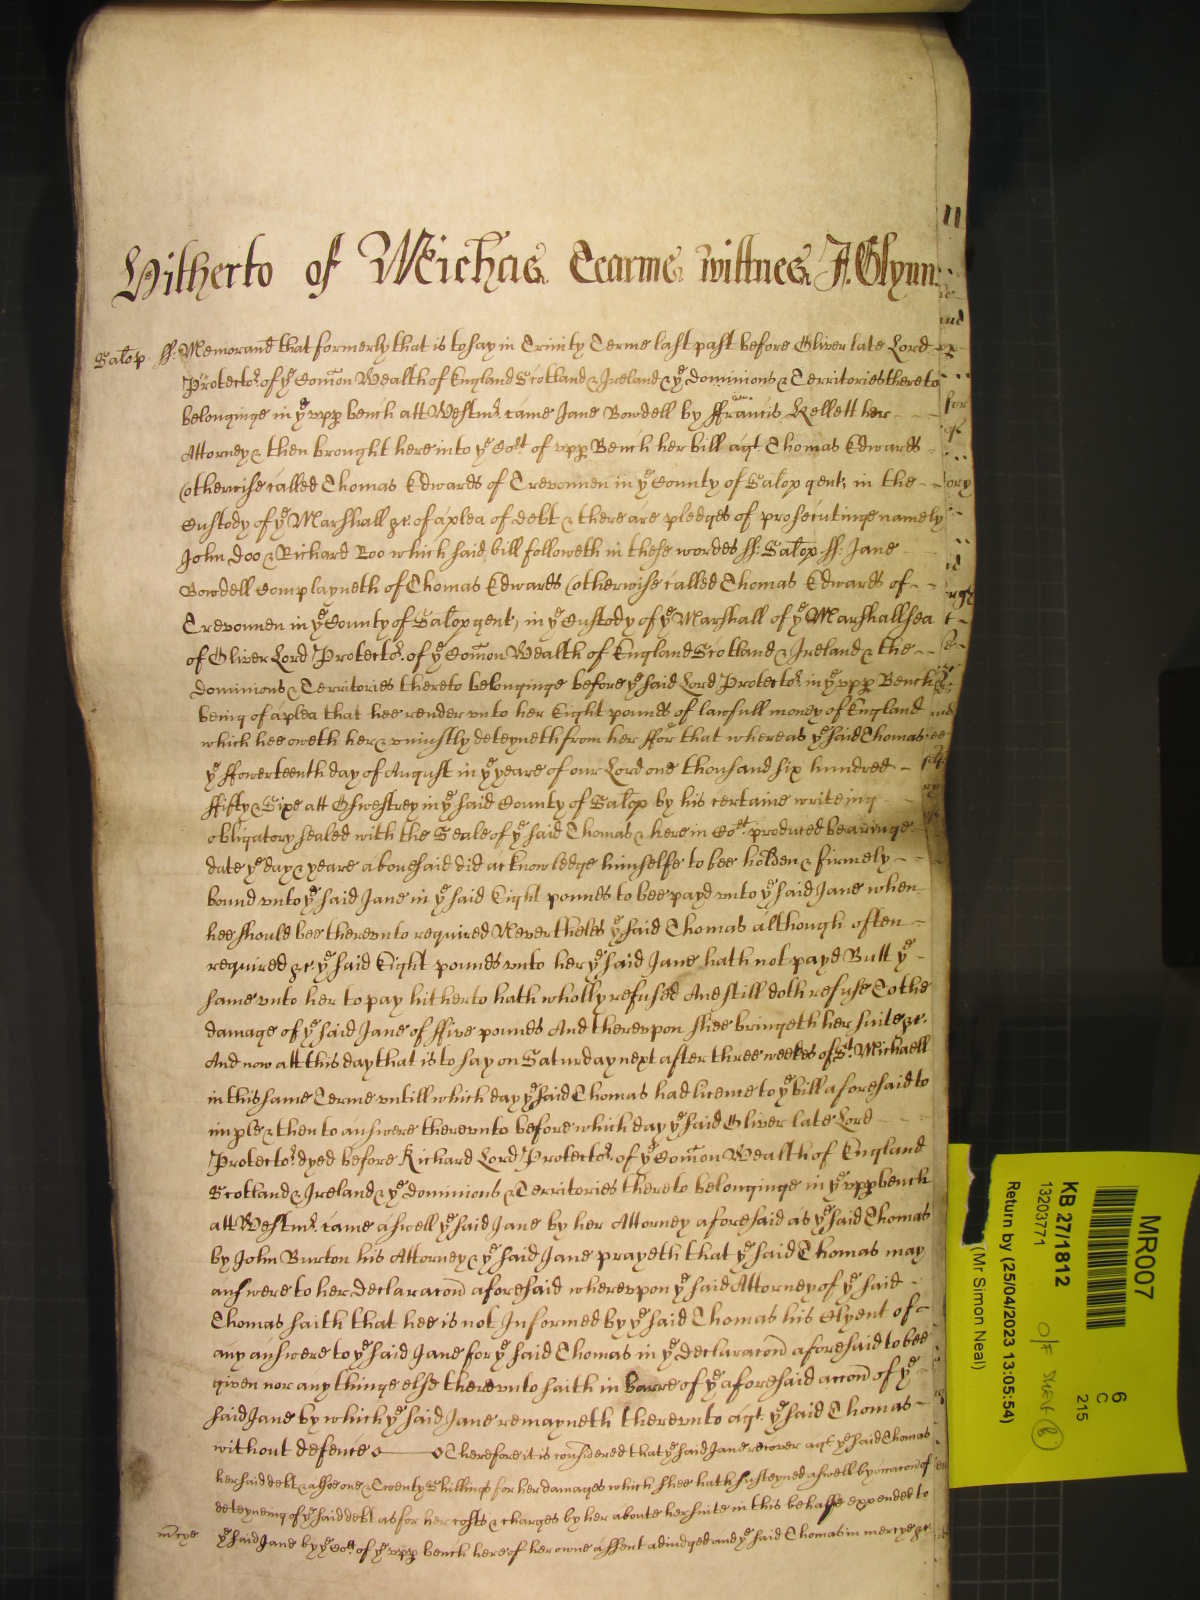 Hitherto of Michas Tearme wittnes J. Glynn
Salop ss. Memorand that formerly that is to say in Trinity Terme last past before Oliver late Lord
Protector of ye Comon Wealth of England Scotland & Ireland & ye dominions & Territories thereto
belonginge in ye upp bench att Westmr. came Jane Bowdell by ffrancis Kellett her
Attorney & then brought here into ye Cort of upp Bench her bill agt. Thomas Edwards
(otherwise called Thomas Edwards of Trevonnen in ye County of Salop gent, in the
Custody of ye Marshall &c of a plea of debt & there are pledges of prosecutinge namely
John Doo & Richard Roo which said bill followeth in these wordes ss. Salop ss. Jane
Bowdell Complayneth of Thomas Edwards (otherwise called Thomas Edwards of
Trevonnen in ye County of Salop gent, in ye Custody of ye Marshall of ye Marshallsea
of Oliver Lord Protector. of ye Comon Wealth of England Scotland & Ireland & the
dominions & Territories thereto belonginge before ye said Lord Protector in ye upp Bench
being of a plea that hee render unto her Eight pounds of lawfull money of England
which hee oweth her & uniustly deteyneth from her ffor that whereas ye said Thomas
ye ffowerteenth day of August in ye yeare of our Lord one thousand six hundred
ffifty & Sixe att Oswestrey in ye said County of Salop by his certaine writeing
obligatory sealed with the Seale of ye said Thomas & here in Cort. produced bearinge
date ye day & yeare abovesaid did acknowledge himselfe to bee holden & firmely
bound unto ye said Jane in ye said Eight pounds to bee payd unto ye said Jane when
hee should bee thereunto required Nevertheles ye said Thomas although often
required &c ye said Eight pounds unto her ye said Jane hath not payd Butt ye
same unto her to pay hitherto hath wholly refused And still doth refuse To the
damage of ye said Jane of ffive pounds And thereupon shee bringeth her suite &c.
And now att this day that is to say on Saturday next after three weekes of St. Michaell
in this same Terme untill which day ye said Thomas had licence to ye bill aforesaid to
imple & then to answere thereunto before which day ye said Oliver late Lord
Protector dyed before Richard Lord Protector. of ye Comon Wealth of England
Scotland & Ireland & ye dominions & Territories thereto belonginge in ye upp bench
att Westmr. came aswell ye said Jane by her Attorney aforesaid as ye said Thomas
by John Burton his Attorney & ye said Jane prayeth that ye said Thomas may
answere to her declaracon aforesaid whereupon ye said Attorney of ye said
Thomas saith that hee is not Informed by ye said Thomas his Clyent of
any answere to ye said Jane for ye said Thomas in ye declaracon aforesaid to bee
given nor any thinge else thereunto saith in barre of ye aforesaid accon of ye
said Jane by which ye said Jane remayneth thereunto agt. ye said Thomas
without defence Therefore it is considered that ye said Jane recover agt ye said Thomas
her said debt & alsoe one & Twenty Shillings for her damages which shee hath susteyned aswell by occacon of
deteyneing of ye said debt as for her costs & charges by her aboute her suite in this behalfe expended to
mcye ye said Jane by ye Cort. of ye upp bench here of her owne assent adiudged and ye said Thomas in mercye &c
MR007
6
C
215
KB 27/1812
13203771
O/F
Return by (25/04/2023 13:05:54)
(Mr Simon Neal)